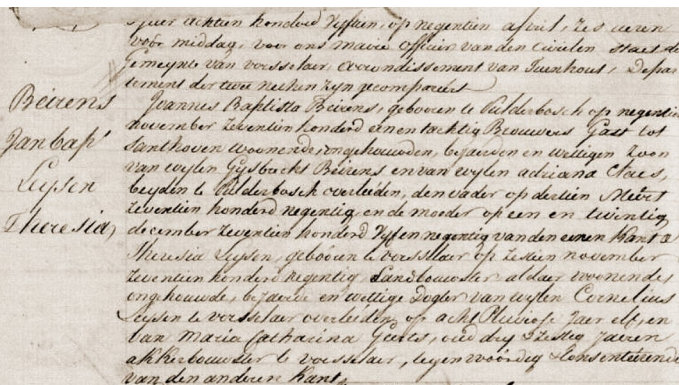 Beirens
Jan bap
Leysen
Theresia
jaer achtien honderd vyftien, op negentien april, zes uren
voor middag, voor ons maire officier van den civilen staet de
gemeynte van vorsselaer, arrondissement van Turnhout, Depar
tement der twee nethen zyn gecompareert
Joannes Baptista Beirens, gebooren te Pulderbosch op negentien
november zeventien honderd een en tachtig Brouwers Gast tot
Santhoven woonende, ongehouwden, bejaerden en wittigen zoon
van wylen Gysbrecht Beirens en van wylen adriana Claes,
beyden te Pulderbosch overleiden, den vader op dertien Meert
zeventien honderd negentig, en de moeder op een en twintig
december zeventien honderd vyf en negentig van den eenen kant &
Theresia Leysen, gebooren te vorsselaer op zestien november
zeventien honderd negentig, Landbouwster aldaer woonende,
ongehouwde, bejaerde en wittige dogter van wylen Cornelius
Leysen te vorsselaer overleiden op acht Pluviose Jaer elf, en
van Maria Catharina Geerts, oud dry & zestig Jaeren
akkerbouwster te vorsselaer, tegenwoordig & consenteerende
van den anderen kant